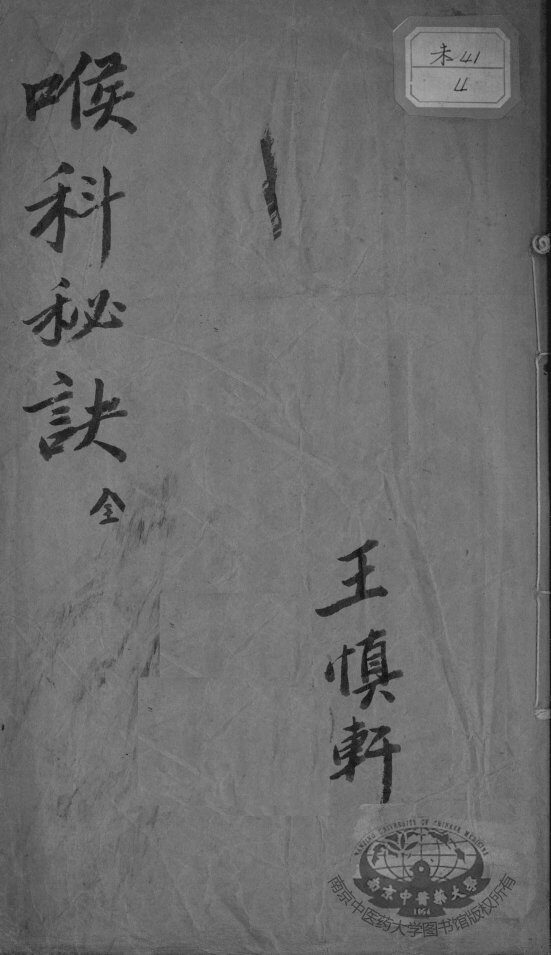 未41
4
喉科秘訣
全
王慎軒
NANJING UNIVERSITY OF CHINESE MEDICINE
南京中醫藥大學
1954
南京中医药大学图书馆版权所有